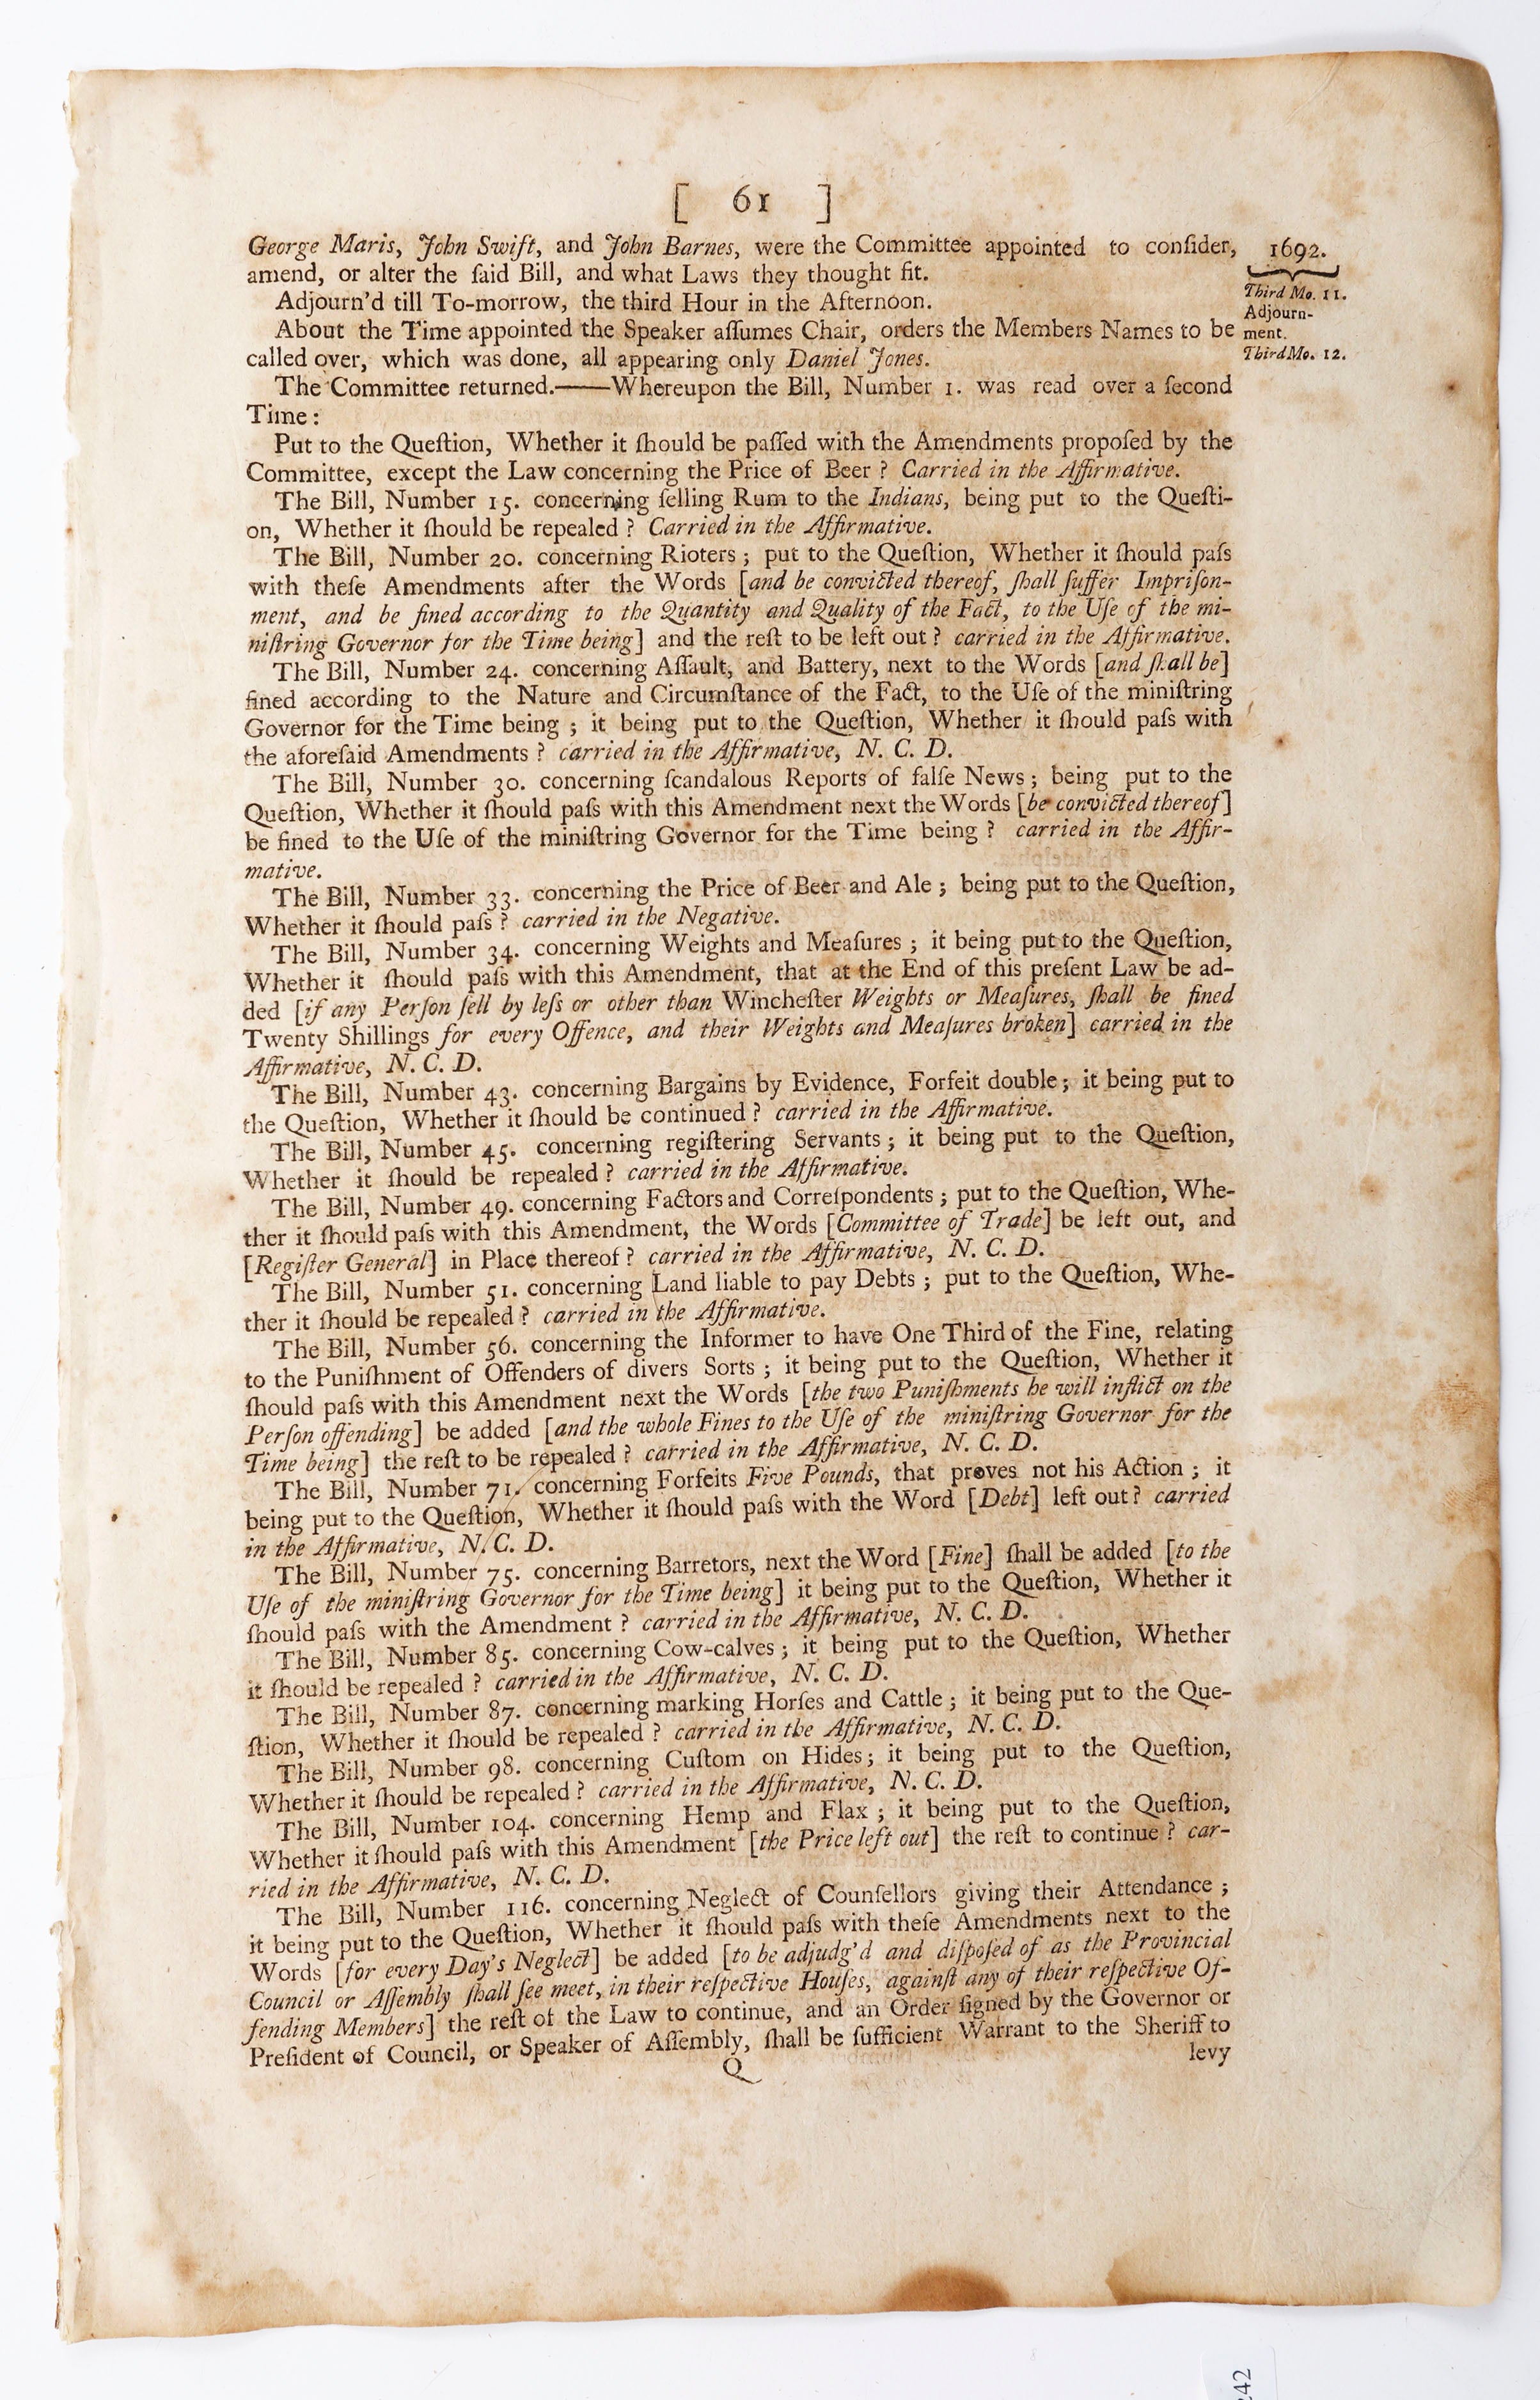 [ 61 ]
George Maris, John Swiſt, and John Barnes, were the Committee appointed to conſider,
amend, or alter the ſaid Bill, and what Laws they thought fit.
Adjourn'd till To-morrow, the third Hour in the Afternoon.
About the Time appointed the Speaker aſſumes Chair, orders the Members Names to be
called over, which was done, all appearing only Daniel Jones.
The Committee returned.——Whereupon the Bill, Number 1. was read over a ſecond
Time:
Put to the Queſtion, Whether it ſhould be paſſed with the Amendments propoſed by the
Committee, except the Law concerning the Price of Beer? Carried in the Affirmative.
The Bill, Number 15. concerning ſelling Rum to the Indians, being put to the Queſti-
on, Whether it ſhould be repealed? Carried in the Affirmative.
The Bill, Number 20. concerning Rioters; put to the Queſtion, Whether it ſhould paſs
with theſe Amendments after the Words [and be convicted thereof, ſhall ſuffer Impriſon-
ment, and be fined according to the Quantity and Quality of the Fact, to the Uſe of the mi-
niſtring Governor for the Time being] and the reſt to be left out? carried in the Affirmative.
The Bill, Number 24. concerning Aſſault, and Battery, next to the Words [and ſhall be]
fined according to the Nature and Circumſtance of the Fact, to the Uſe of the miniſtring
Governor for the Time being; it being put to the Queſtion, Whether it ſhould paſs with
the aforeſaid Amendments? carried in the Affirmative, N. C. D.
The Bill, Number 30. concerning ſcandalous Reports of falſe News; being put to the
Queſtion, Whether it ſhould paſs with this Amendment next the Words [be convicted thereof]
be fined to the Uſe of the miniſtring Governor for the Time being? carried in the Affir-
mative.
The Bill, Number 33. concerning the Price of Beer and Ale; being put to the Queſtion,
Whether it ſhould paſs? carried in the Negative.
The Bill, Number 34. concerning Weights and Meaſures; it being put to the Queſtion,
Whether it ſhould paſs with this Amendment, that at the End of this preſent Law be ad-
ded [if any Perſon ſell by leſs or other than Wincheſter Weights or Meaſures, ſhall be fined
Twenty Shillings for every Offence, and their Weights and Meaſures broken] carried in the
Affirmative, N. C. D.
The Bill, Number 43. concerning Bargains by Evidence, Forfeit double; it being put to
the Queſtion, Whether it ſhould be continued? carried in the Affirmative.
The Bill, Number 45. concerning regiſtering Servants; it being put to the Queſtion,
Whether it ſhould be repealed? carried in the Affirmative.
The Bill, Number 49. concerning Factors and Correſpondents; put to the Queſtion, Whe-
ther it ſhould paſs with this Amendment, the Words [Committee of Trade] be left out, and
[Regiſter General] in Place thereof? carried in the Affirmative, N. C. D.
The Bill, Number 51. concerning Land liable to pay Debts; put to the Queſtion, Whe-
ther it ſhould be repealed? carried in the Affirmative.
The Bill, Number 56. concerning the Informer to have One Third of the Fine, relating
to the Puniſhment of Offenders of divers Sorts; it being put to the Queſtion, Whether it
ſhould paſs with this Amendment next the Words [the two Puniſhments he will inflict on the
Perſon offending] be added [and the whole Fines to the Uſe of the miniſtring Governor for the
Time being] the reſt to be repealed? carried in the Affirmative, N. C. D.
The Bill, Number 71. concerning Forfeits Five Pounds, that proves not his Action; it
being put to the Queſtion, Whether it ſhould paſs with the Word [Debt] left out? carried
in the Affirmative, N. C. D.
The Bill, Number 75. concerning Barretors, next the Word [Fine] ſhall be added [to the
Uſe of the miniſtring Governor for the Time being] it being put to the Queſtion, Whether it
ſhould paſs with the Amendment? carried in the Affirmative, N. C. D.
The Bill, Number 85. concerning Cow-calves; it being put to the Queſtion, Whether
it ſhould be repealed? carried in the Affirmative, N. C. D.
The Bill, Number 87. concerning marking Horſes and Cattle; it being put to the Que-
ſtion, Whether it ſhould be repealed? carried in the Affirmative, N. C. D.
The Bill, Number 98. concerning Cuſtom on Hides; it being put to the Queſtion,
Whether it ſhould be repealed? carried in the Affirmative, N. C. D.
The Bill, Number 104. concerning Hemp and Flax; it being put to the Queſtion,
Whether it ſhould paſs with this Amendment [the Price left out] the reſt to continue? car-
ried in the Affirmative, N. C. D.
The Bill, Number 116. concerning Neglect of Counſellors giving their Attendance;
it being put to the Queſtion, Whether it ſhould paſs with theſe Amendments next to the
Words [for every Day's Neglect] be added [to be adjudg'd and diſpoſed of as the Provincial
Council or Aſſembly ſhall ſee meet, in their reſpective Houſes, againſt any of their reſpective Of-
fending Members] the reſt of the Law to continue, and an Order ſigned by the Governor or
Preſident of Council, or Speaker of Aſſembly, ſhall be ſufficient Warrant to the Sheriff to
Q
levy
1692.
Third Mo. 11.
Adjourn-
ment.
Third Mo. 12.
242